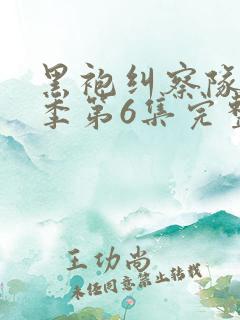 黑袍纠察队
季第6集完整
王功尚
未经同意禁止转载